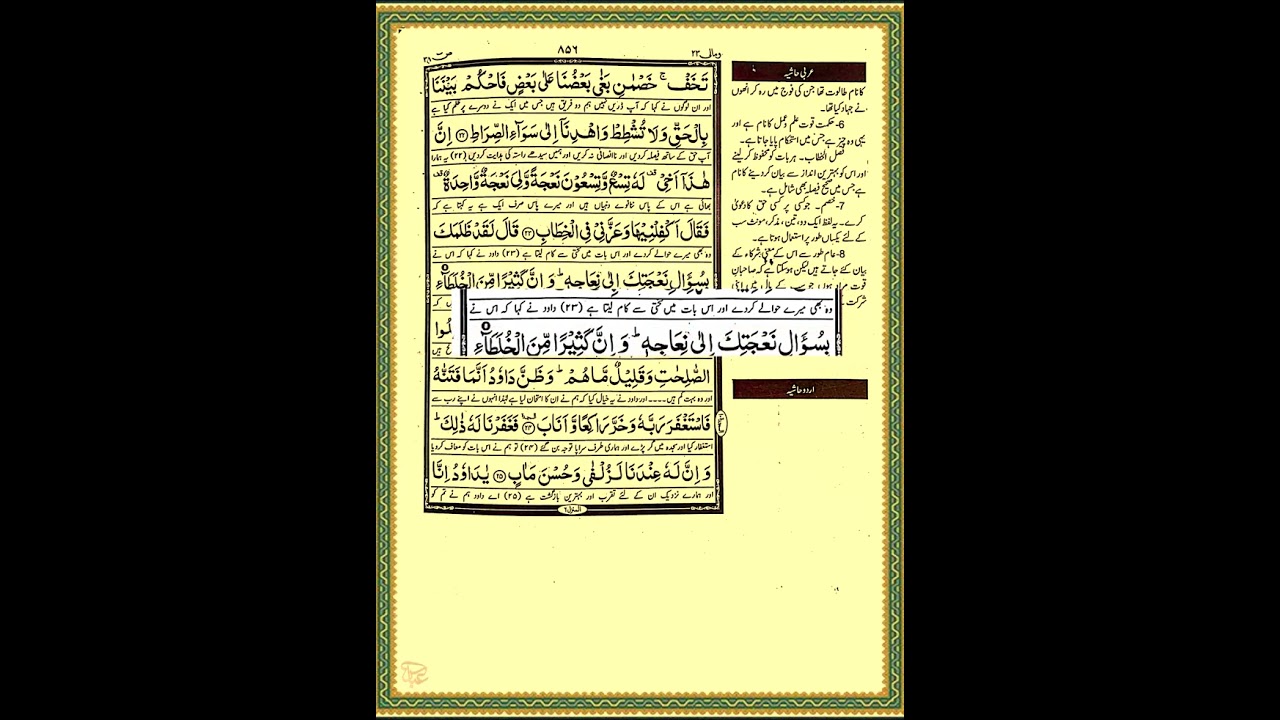 ومالی ۲۳
۸۵۶
صٓ ۳۸
تَخَفْ ۚ خَصْمٰنِ بَغٰی بَعْضُنَا عَلٰی بَعْضٍ فَاحْكُمْ بَیْنَنَا
اور ان لوگوں نے کہا کہ آپ ڈریں نہیں ہم دو فریق ہیں جس میں ایک نے دوسرے پر ظلم کیا ہے
بِالْحَقِّ وَلَا تُشْطِطْ وَاهْدِنَاۤ اِلٰی سَوَآءِ الصِّرَاطِ ﴿۲۲﴾ اِنَّ
آپ حق کے ساتھ فیصلہ کردیں اور ناانصافی نہ کریں اور ہمیں سیدھے راستہ کی ہدایت کردیں (۲۲) یہ ہمارا
هٰذَاۤ اَخِیْ ۫ لَهٗ تِسْعٌ وَّتِسْعُوْنَ نَعْجَةً وَّلِیَ نَعْجَةٌ وَّاحِدَةٌ ۫
بھائی ہے اس کے پاس ننانوے دنبیاں ہیں اور میرے پاس صرف ایک ہے یہ کہتا ہے کہ
فَقَالَ اَكْفِلْنِیْهَا وَعَزَّنِیْ فِی الْخِطَابِ ﴿۲۳﴾ قَالَ لَقَدْ ظَلَمَكَ
وہ بھی میرے حوالے کردے اور اس بات میں سختی سے کام لیتا ہے (۲۳) داود نے کہا کہ اس نے
بِسُؤَالِ نَعْجَتِكَ اِلٰی نِعَاجِهٖ ؕ وَ اِنَّ كَثِیْرًا مِّنَ الْخُلَطَآءِ
وہ بھی میرے حوالے کردے اور اس بات میں سختی سے کام لیتا ہے (۲۳) داود نے کہا کہ اس نے
بِسُؤَالِ نَعْجَتِكَ اِلٰی نِعَاجِهٖ ؕ وَ اِنَّ كَثِیْرًا مِّنَ الْخُلَطَآءِ
الصّٰلِحٰتِ وَقَلِیْلٌ مَّا هُمْ ؕ وَظَنَّ دَاوٗدُ اَنَّمَا فَتَنّٰهُ
اور وہ بہت کم ہیں.... اور داود نے یہ خیال کیا کہ ہم نے ان کا امتحان لیا ہے لہٰذا انہوں نے اپنے رب سے
فَاسْتَغْفَرَ رَبَّهٗ وَخَرَّ رَاكِعًا وَّاَنَابَ ﴿۲۴﴾ فَغَفَرْنَا لَهٗ ذٰلِكَ ؕ
استغفار کیا اور سجدہ میں گر پڑے اور ہماری طرف سراپا توجہ بن گئے (۲۴) تو ہم نے اس بات کو معاف کردیا
وَ اِنَّ لَهٗ عِنْدَنَا لَزُلْفٰی وَحُسْنَ مَاٰبٍ ﴿۲۵﴾ یٰدَاوٗدُ اِنَّا
اور ہمارے نزدیک ان کے لئے تقرب اور بہترین بازگشت ہے (۲۵) اے داود ہم نے تم کو
المنزل ٦
عربی حاشیہ
کا نام طالوت تھا جن کی فوج میں رہ کر انھوں
نے جہاد کیا تھا۔
6-حکمت قوت علم و عمل کا نام ہے اور
یہی وہ چیز ہے جس میں استحکام پایا جاتا ہے۔
فصل الخطاب۔ ہر بات کو محفوظ کر لینے
اور اس کو بہترین انداز سے بیان کردینے کا نام
ہے جس میں صحیح فیصلہ بھی شامل ہے۔
7-خصم۔ جو کسی پر کسی حق کا دعویٰ
کرے۔ یہ لفظ ایک، دو، تین، مذکر، مونث سب
کے لئے یکساں طور پر استعمال ہوتا ہے۔
8-عام طور سے اس کے معنی شرکاء کے
بیان کئے جاتے ہیں لیکن ہوسکتا ہے کہ صاحبان
قوت مراد ہوں
شرکت
اردو حاشیہ